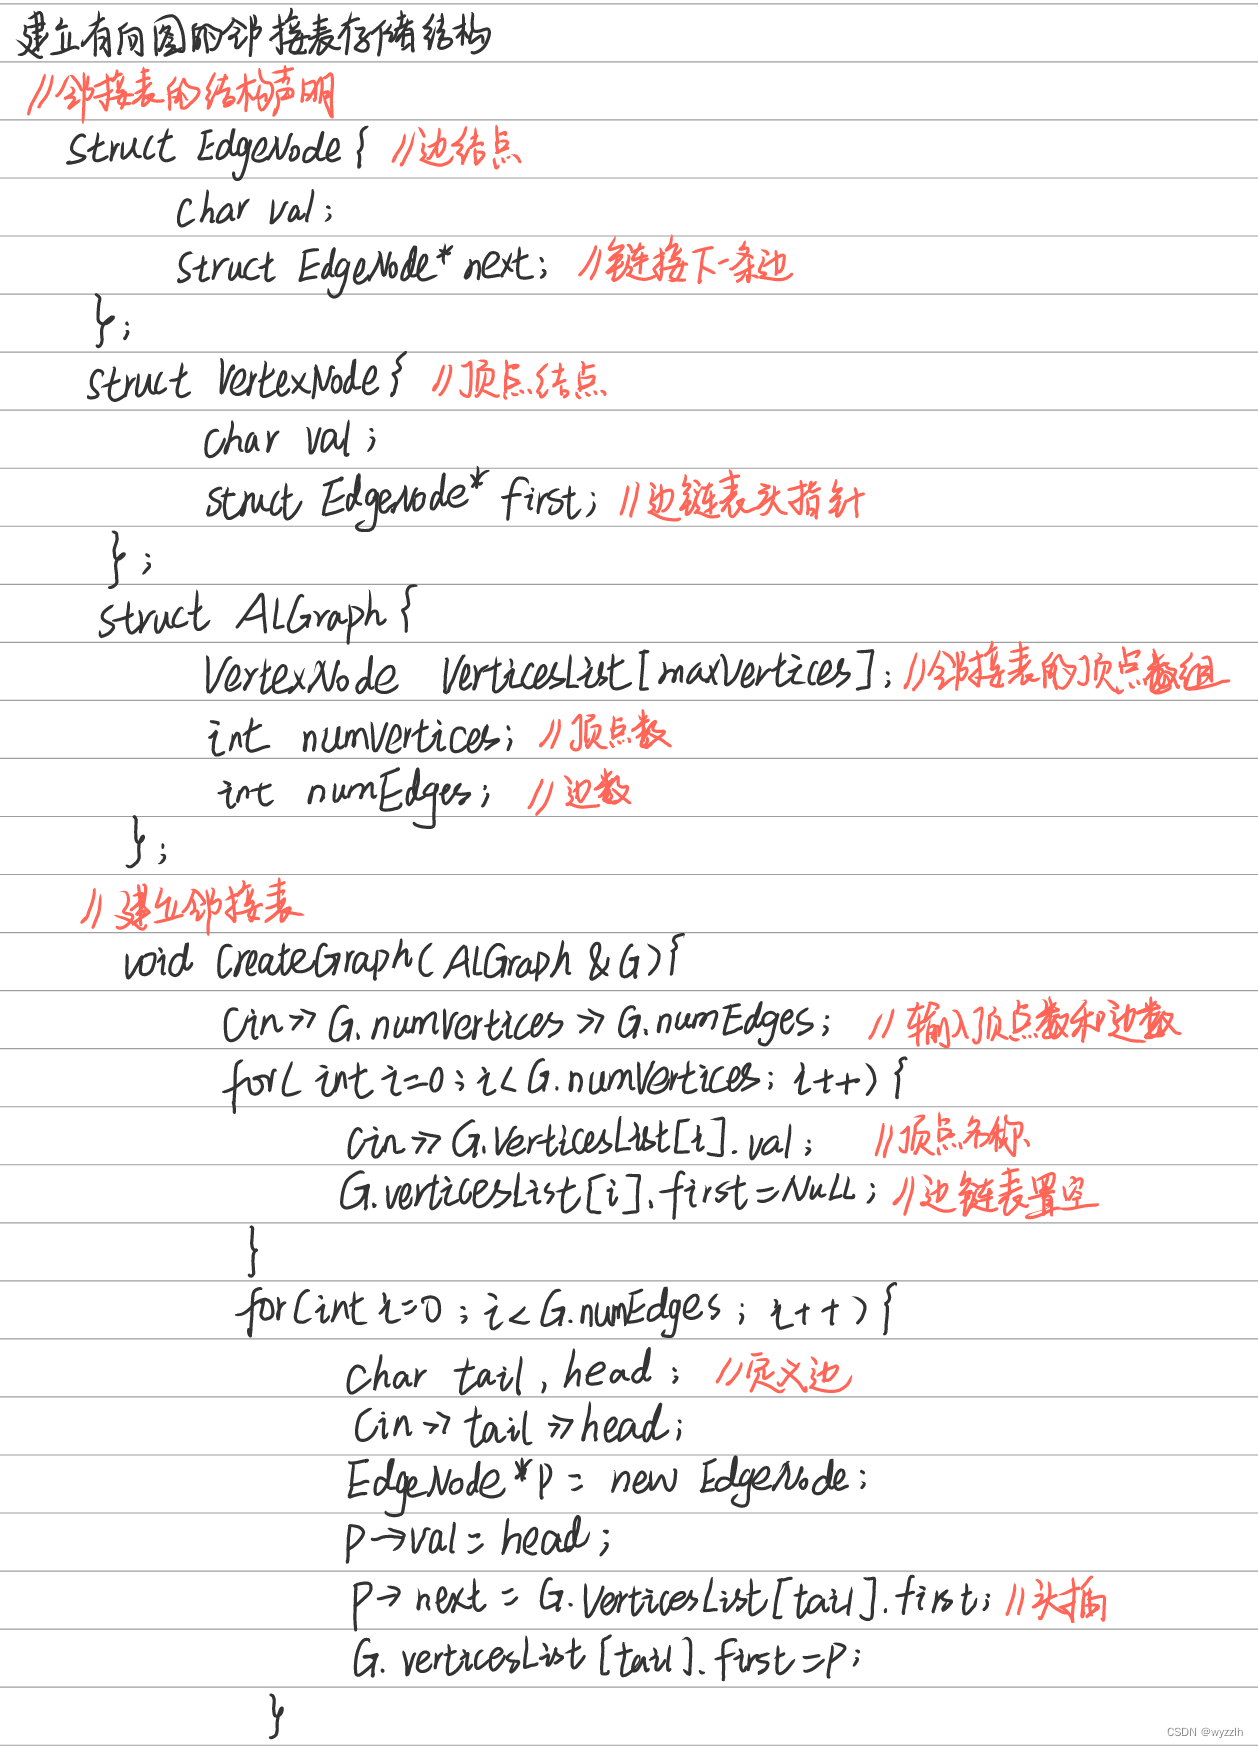 建立有向图的邻接表存储结构
//邻接表的结构声明
struct EdgeNode{ //边结点
char val;
struct EdgeNode* next; //链接下一条边
};
struct VertexNode{ //顶点结点
char val;
struct EdgeNode* first; //边链表头指针
};
struct ALGraph{
VertexNode VerticesList[maxVertices]; //邻接表的顶点数组
int numVertices; //顶点数
int numEdges; //边数
};
//建立邻接表
void CreateGraph(ALGraph &G){
cin>>G.numVertices>>G.numEdges; //输入顶点数和边数
for(int i=0;i<G.numVertices;i++){
cin>>G.VerticesList[i].val; //顶点名称
G.verticesList[i].first=NULL; //边链表置空
}
for(int i=0;i<G.numEdges;i++){
char tail,head; //定义边
cin>>tail>>head;
EdgeNode*p=new EdgeNode;
p->val=head;
p->next=G.VerticesList[tail].first; //头插
G.verticesList[tail].first=p;
}
CSDN @wyzzlh